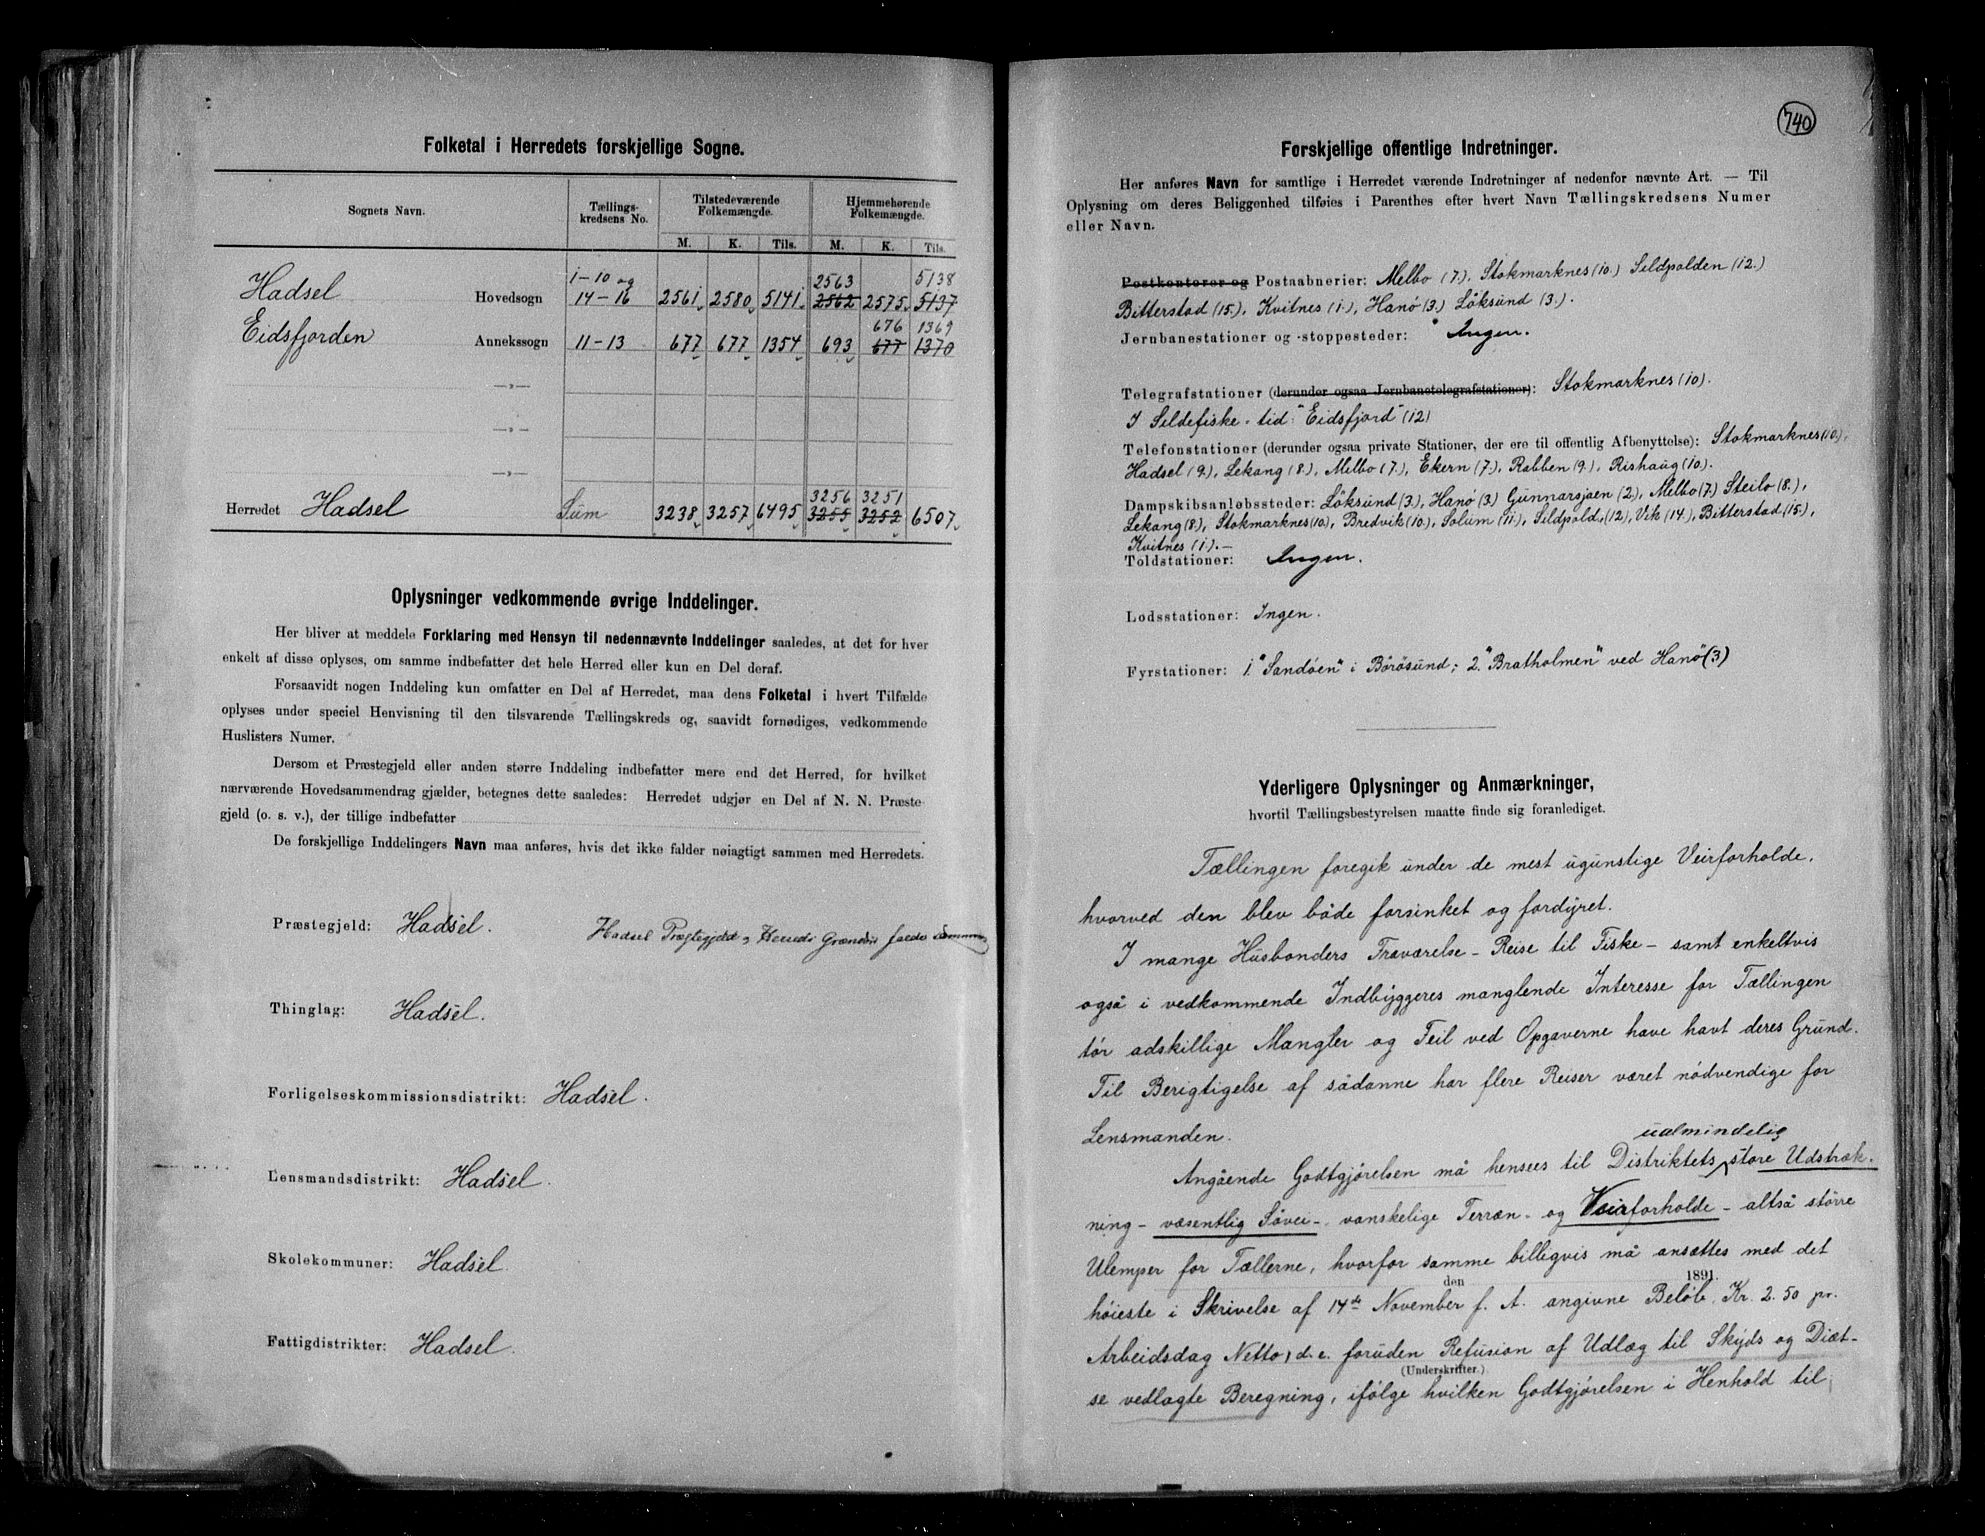 Folketal i Herredets forskjellige Sogne.
Sognets Navn. Tællings-kredsens No. Tilstedeværende Folkemængde. Hjemmehørende Folkemængde.
M. K. Tils. M. K. Tils.
1-10 og 2563 5138
Hadsel Hovedsogn 14-16 2561 2580 5141 2562 2575 5137
676 1369
Eidsfjorden Annekssogn 11-13 677 677 1354 693 677 1370
—»—
—»—
—»—
3256 3251
Herredet Hadsel Sum 3238 3257 6495 3255 3252 6507
Oplysninger vedkommende øvrige Inddelinger.
Her bliver at meddele Forklaring med Hensyn til nedennævnte Inddelinger saaledes, at det for hver
enkelt af disse oplyses, om samme indbefatter det hele Herred eller kun en Del deraf.
Forsaavidt nogen Inddeling kun omfatter en Del af Herredet, maa dens Folketal i hvert Tilfælde
oplyses under speciel Henvisning til den tilsvarende Tællingskreds og, saavidt fornødiges, vedkommende
Huslisters Numer.
Dersom et Præstegjeld eller anden større Inddeling indbefatter mere end det Herred, for hvilket
nærværende Hovedsammendrag gjælder, betegnes dette saaledes: Herredet udgjør en Del af N. N. Præste-
gjeld (o. s. v.), der tillige indbefatter
De forskjellige Inddelingers Navn maa anføres, hvis det ikke falder nøiagtigt sammen med Herredets.
Præstegjeld: Hadsel. Hadsel Præstegjeld og Herreds Grændser falde sammen
Thinglag: Hadsel.
Forligelseskommissionsdistrikt: Hadsel.
Lensmandsdistrikt: Hadsel.
Skolekommuner: Hadsel.
Fattigdistrikter: Hadsel.
740
Forskjellige offentlige Indretninger.
Her anføres Navn for samtlige i Herredet værende Indretninger af nedenfor nævnte Art. — Til
Oplysning om deres Beliggenhed tilføies i Parenthes efter hvert Navn Tællingskredsens Numer
eller Navn.
Postkontorer og Postaabnerier: Melbo (7.), Stokmarknes (10.) Sildpolden (12.)
Bitterstad (15.), Kvitnes (1.), Hanø (3.) Løksund (3.).
Jernbanestationer og -stoppesteder: Ingen.
Telegrafstationer (derunder ogsaa Jernbanetelegrafstationer): Stokmarknes (10).
I Sildefiske-tid: "Eidsfjord" (12)
Telefonstationer (derunder ogsaa private Stationer, der ere til offentlig Afbenyttelse): Stokmarknes (10.),
Hadsel (9.), Lekang (8.), Melbo (7.), Ekern (7.), Rabben (9.), Rishaug (10.).
Dampskibsanløbssteder: Løksund (3.), Hanø (3.) Gunnarsjøen (2.), Melbo (7.) Steilo (8.),
Lekang (8.), Stokmarknes (10.), Bredvik (10.), Solum (11.), Sildpold. (12.), Vik (14.), Bitterstad (15.),
Kvitnes (1.).—
Toldstationer: Ingen.
Lodsstationer: Ingen.
Fyrstationer: 1. "Sandöen" i Börösund; 2. "Bratholmen" ved Hanö (3)
Yderligere Oplysninger og Anmærkninger,
hvortil Tællingsbestyrelsen maatte finde sig foranlediget.
Tællingen foregik under de mest ugunstige Veirforholde,
hvorved den blev både forsinket og fordyret.
I mange Husbonders Fraværelse – Reise til Fiske – samt enkeltvis
også i vedkommende Indbyggeres manglende Interesse for Tællingen
tør adskillige Mangler og Feil ved Opgaverne have havt deres Grund.
Til Berigtigelse af sådanne har flere Reiser været nödvendige for
Lensmanden.
ualmindelig
Angående Godtgjörelsen må hensees til Distriktets store Udstræk-
ning – væsentlig Søvei – vanskelige Terræn – og Veirforholde – altså större
Ulemper for Tællerne, hvorfor samme billigvis må ansættes med det
den 1891.
höieste i Skrivelse af 14de November f. A. angivne Belöb, Kr. 2.50 pr.
Arbeidsdag Netto, d. e. foruden Refusion af Udlæg til Skyds og Diæt-
(Underskrifter.)
se vedlagte Beregning, ifölge hvilken Godtgjörelsen i Henhold til